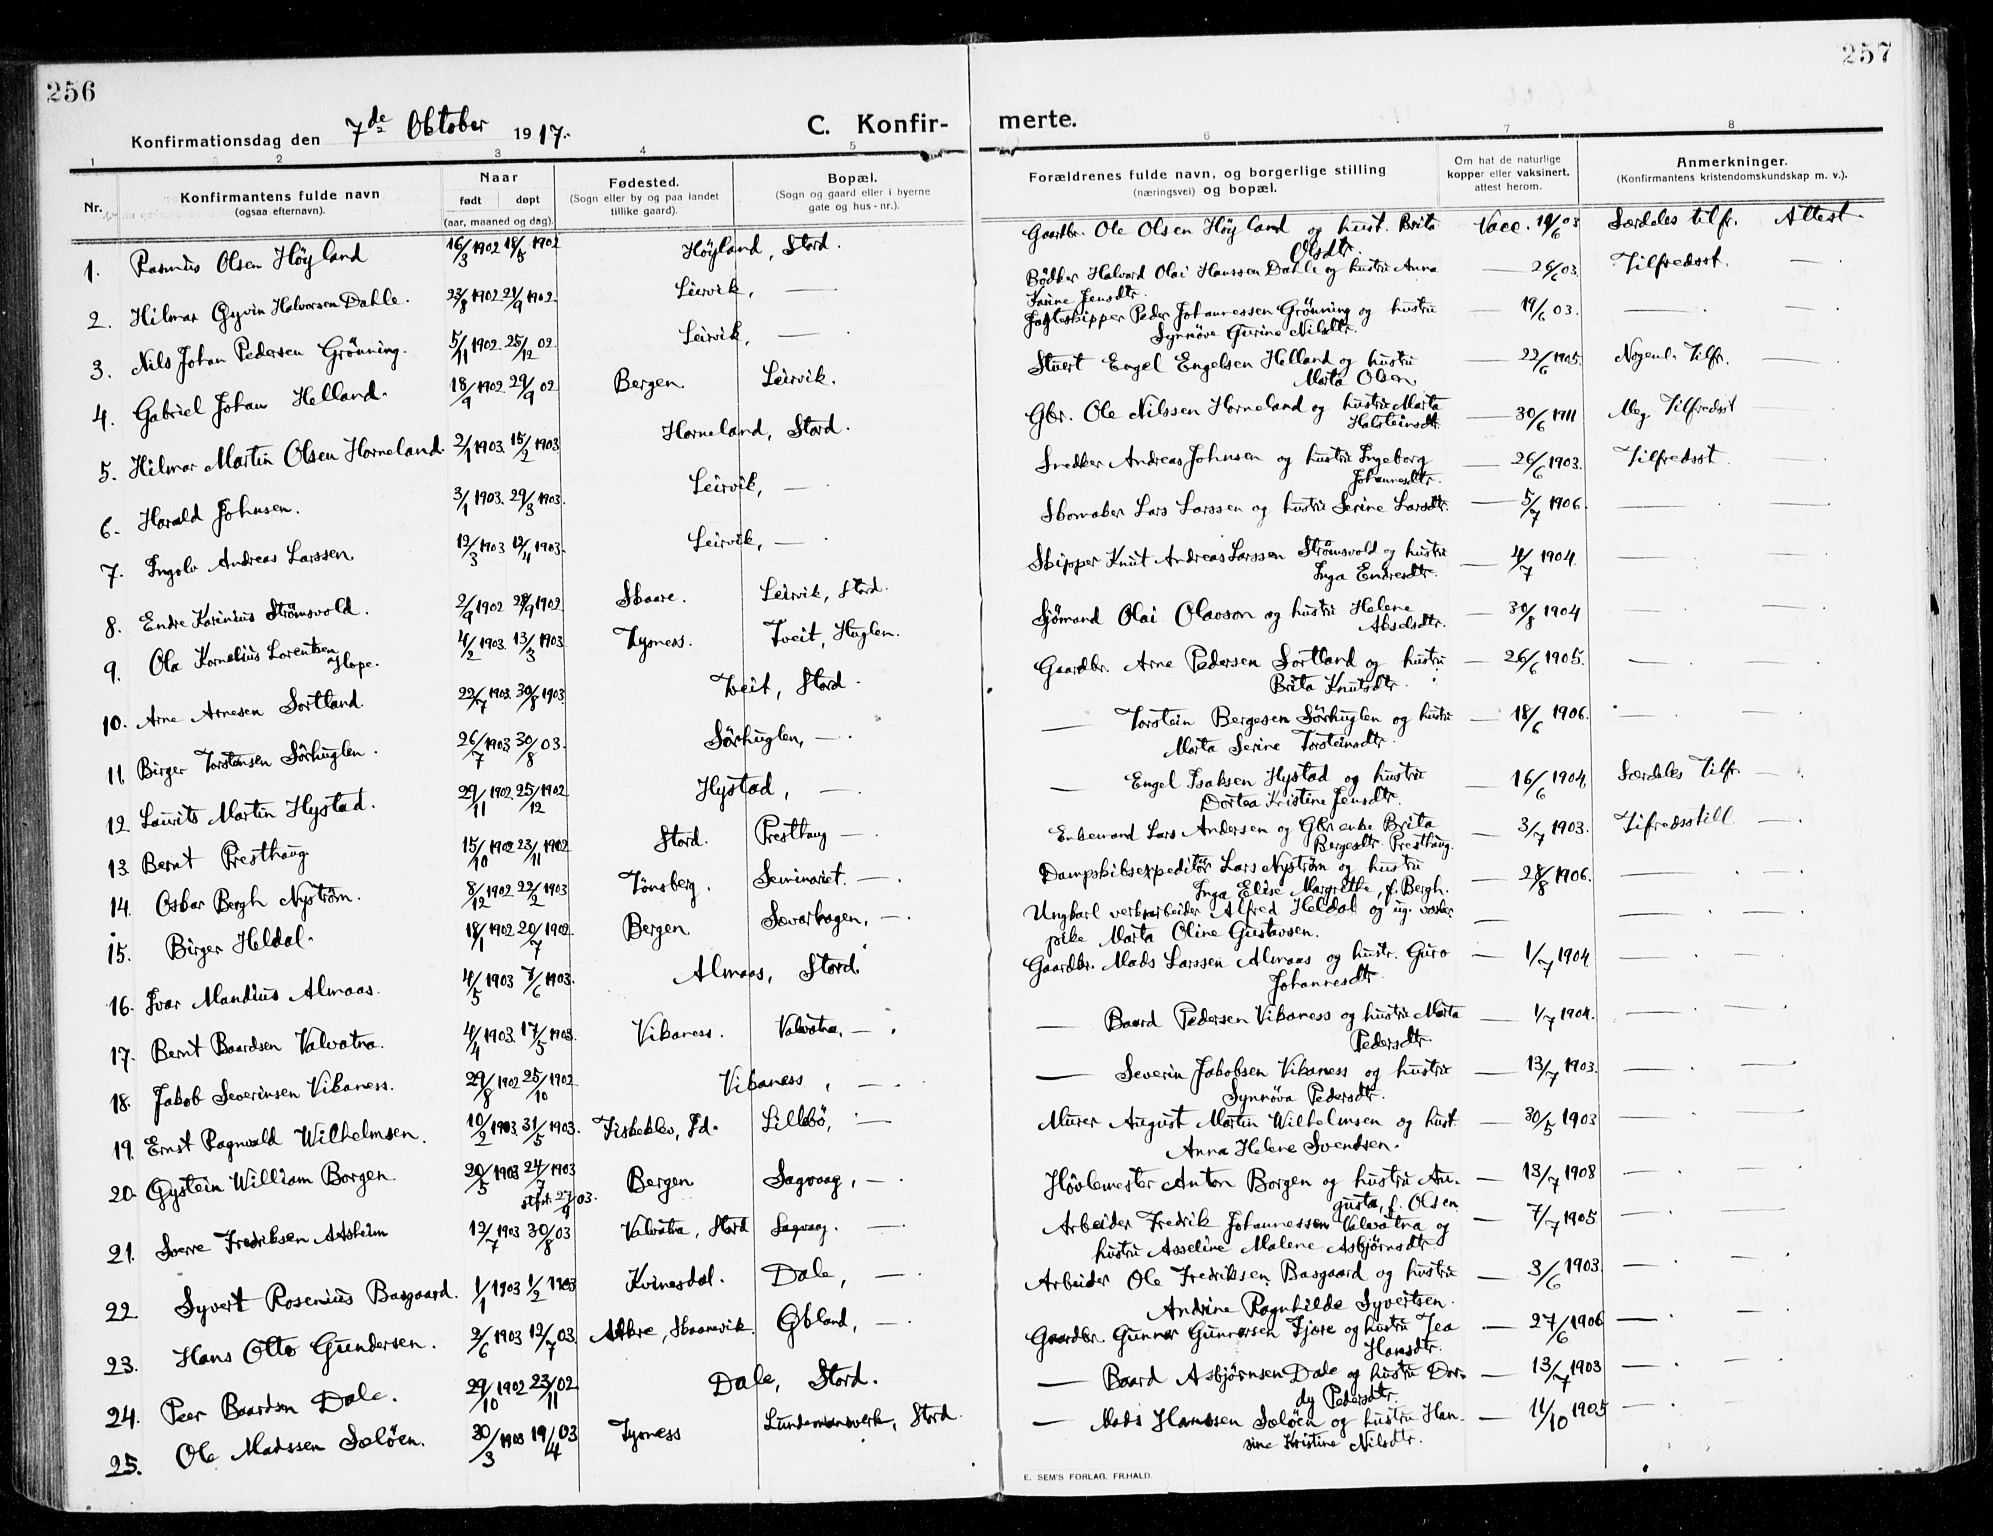 256
257
Konfirmationsdag den 7de Oktober 1917.
C. Konfir-
merte.
1 2 3 4 5 6 7 8
Nr.
Konfirmantens fulde navn
(ogsaa efternavn).
Naar
født døpt
(aar, maaned og dag).
Fødested.
(Sogn eller by og paa landet
tillike gaard).
Bopæl.
(Sogn og gaard eller i byerne
gate og hus-nr.).
Forældrenes fulde navn, og borgerlige stilling
(næringsvei) og bopæl.
Om hat de naturlige
kopper eller vaksinert,
attest herom.
Anmerkninger.
(Konfirmantens kristendomskundskap m. v.).
1. Rasmus Olsen Høyland 16/3 1902 18/5 1902 Høyland, Stord. Gaardbr. Ole Olsen Høyland og hust. Brita Vacc. 19/6 03 Særdeles tilfr. Attest
Olsdtr.
2. Hilmar Øyvin Halvorsen Dahle. 23/8 1902 21/9 1902. Leirvik, — Bødker Halvard Olai Hanssen Dahle og hustru Anna — 26/6 03. Tilfredsst. —
Karine Jensdtr.
3. Nils Johan Pedersen Grönning. 5/11 1902 25/12 02. Leirvik, — Jagteskipper Peder Johannessen Grönning og hustru — 19/6 03. — —
Synnöve Gurine Nilsdtr.
4. Gabriel Johan Helland. 18/9 1902 29/9 02 Bergen. Leirvik. Stuert Engel Engelsen Helland og hustru — 22/6 1905. Nogenl. Tilfr. —
Marta Olsen
5. Hilmar Martin Olsen Horneland. 2/1 1903. 15/2 1903 Horneland, Stord. Gbr. Ole Nilssen Horneland og hustru Marta — 30/6 1911 Meg. Tilfredsst —
Halsteinsdtr.
6. Harald Johnsen. 3/1 1903. 29/3 1903. Leirvik, — Snedker Andreas Johnsen og hustru Ingeborg — 26/6 1903. Tilfredsst. —
Johannesdtr.
7. Ingolv Andreas Larssen 12/3 1903 12/4 1903. Leirvik, — Skomaker Lars Larssen og hustru Serine Larsdtr. — 5/7 1906. — —
8. Endre Karinius Strømsvold. 2/9 1902 28/9 1902 Skaare. Leirvik, Stord. Skipper Knut Andreas Larssen Strømsvold og hustru — 4/7 1904. — —
Inga Endresdtr.
9. Ola Kornelius Lorentsen 4/2 1903. 13/3 1903 Tysness. Tveit, Huglen. Sjömand Olai Olavson og hustru Helene — 30/8 1904 — —
Hope. Akselsdtr.
10. Arne Arnesen Sortland. 22/7 1903. 30/8 1903. Tveit, Stord. Gaardbr. Arne Pedersen Sortland og hustru — 26/6 1905. — —
Brita Knutsdtr.
11. Birger Torstensen Sörhuglen. 26/7 1903 30/8 03. Sörhuglen, — — Torstein Bergesen Sörhuglen og hustru — 18/6 1906. — —
Marta Serine Torsteinsdtr.
12. Laurits Martin Hystad. 29/11 1902. 25/12 1902 Hystad, — — Engel Isaksen Hystad og hustru — 16/6 1904 Særdeles Tilfr. —
Dortea Kristine Jensdtr.
13. Bernt Presthaug 15/10 1902 23/11 1902 Stord. Presthaug — Enkemand Lars Andersen og Gbr. enke Brita — 3/7 1903. Tifredsstill —
Bergesdtr. Presthaug.
14. Oskar Bergh Nyström. 8/12 1902 22/2 1903 Tönsberg. Seminariet. — Dampskibsexpeditör Lars Nyström og hustru — 28/8 1906. — —
Inga Elise Margrethe, f. Bergh.
15. Birger Heldal. 18/1 1902 20/7 1902. Bergen. Sævarhagen, — Ungkarl verksarbeider Alfred Heldal og ug. vasker — — —
pike Marta Oline Gustavsen.
16. Ivar Mandius Almaas. 4/5 1903 7/6 1903. Almaas, Stord. Gaardbr. Mads Larssen Almaas og hustr. Guro — 1/7 1904 — —
Johannesdtr.
17. Bernt Baardsen Valvatna. 4/4 1903. 17/5 1903. Vikaness. Valvatna, — — Baard Pedersen Vikaness og hustru Marta — 1/7 1904. — —
Pedersdtr
18. Jakob Severinsen Vikaness. 29/8 1902 25/10 1902 Vikaness, — — Severin Jakobsen Vikaness og hustru — 13/7 1903. — —
Synnöva Pedersdtr.
19. Ernst Ragnvald Wilhelmsen. 10/2 1903. 31/5 1903. Fiskeklev, Id. Lillebö, — Murer August Martin Wilhelmsen og hust. — 30/5 1903 — —
Anna Helene Svendsen.
20. Øystein William Borgen 20/5 1903 24/7 1903 Bergen Sagvaag, — Høvlemester Anton Borgen og hustru Au- — 13/7 1908 — —
stfst. 27/9 03. gusta, f. Olsen
21. Sverre Fredriksen Aasheim 12/7 1903 30/8 03 Valvatna, Stord Sagvaag. — Arbeider Fredrik Johannessen Valvatna og — 7/7 1905 — —
hustru Asseline Malene Asbjørnsdtr.
22. Syvert Rosenius Basgaard. 1/1 1903 1/2 1903 Kvinesdal. Dale, — Arbeider Ole Fredriksen Basgaard og hustru — 3/6 1903. — —
Andrine Ragnhilde Syvertsen.
23. Hans Otto Gundersen. 2/6 1903 12/7 03. Aakre, Skaanevik. Økland, — Gaardbr. Gunnar Gunnarsen Fjøre og hustru Tea — 27/6 1906 — —
Hansdtr.
24. Peer Baardsen Dale. 29/10 1902 23/11 02 Dale, Stord. — Baard Asbjørnsen Dale og hustru Dor- — 13/7 1903 — —
dy Pedersdtr.
25. Ole Madssen Sælöen. 30/3 1903 19/4 03 Tysness Lundemansverk, Stord. — Mads Hanssen Sælöen og hustru Han- — 11/10 1905 — —
sine Kristine Nilsdtr.
E. SEM'S FORLAG, FR.HALD.